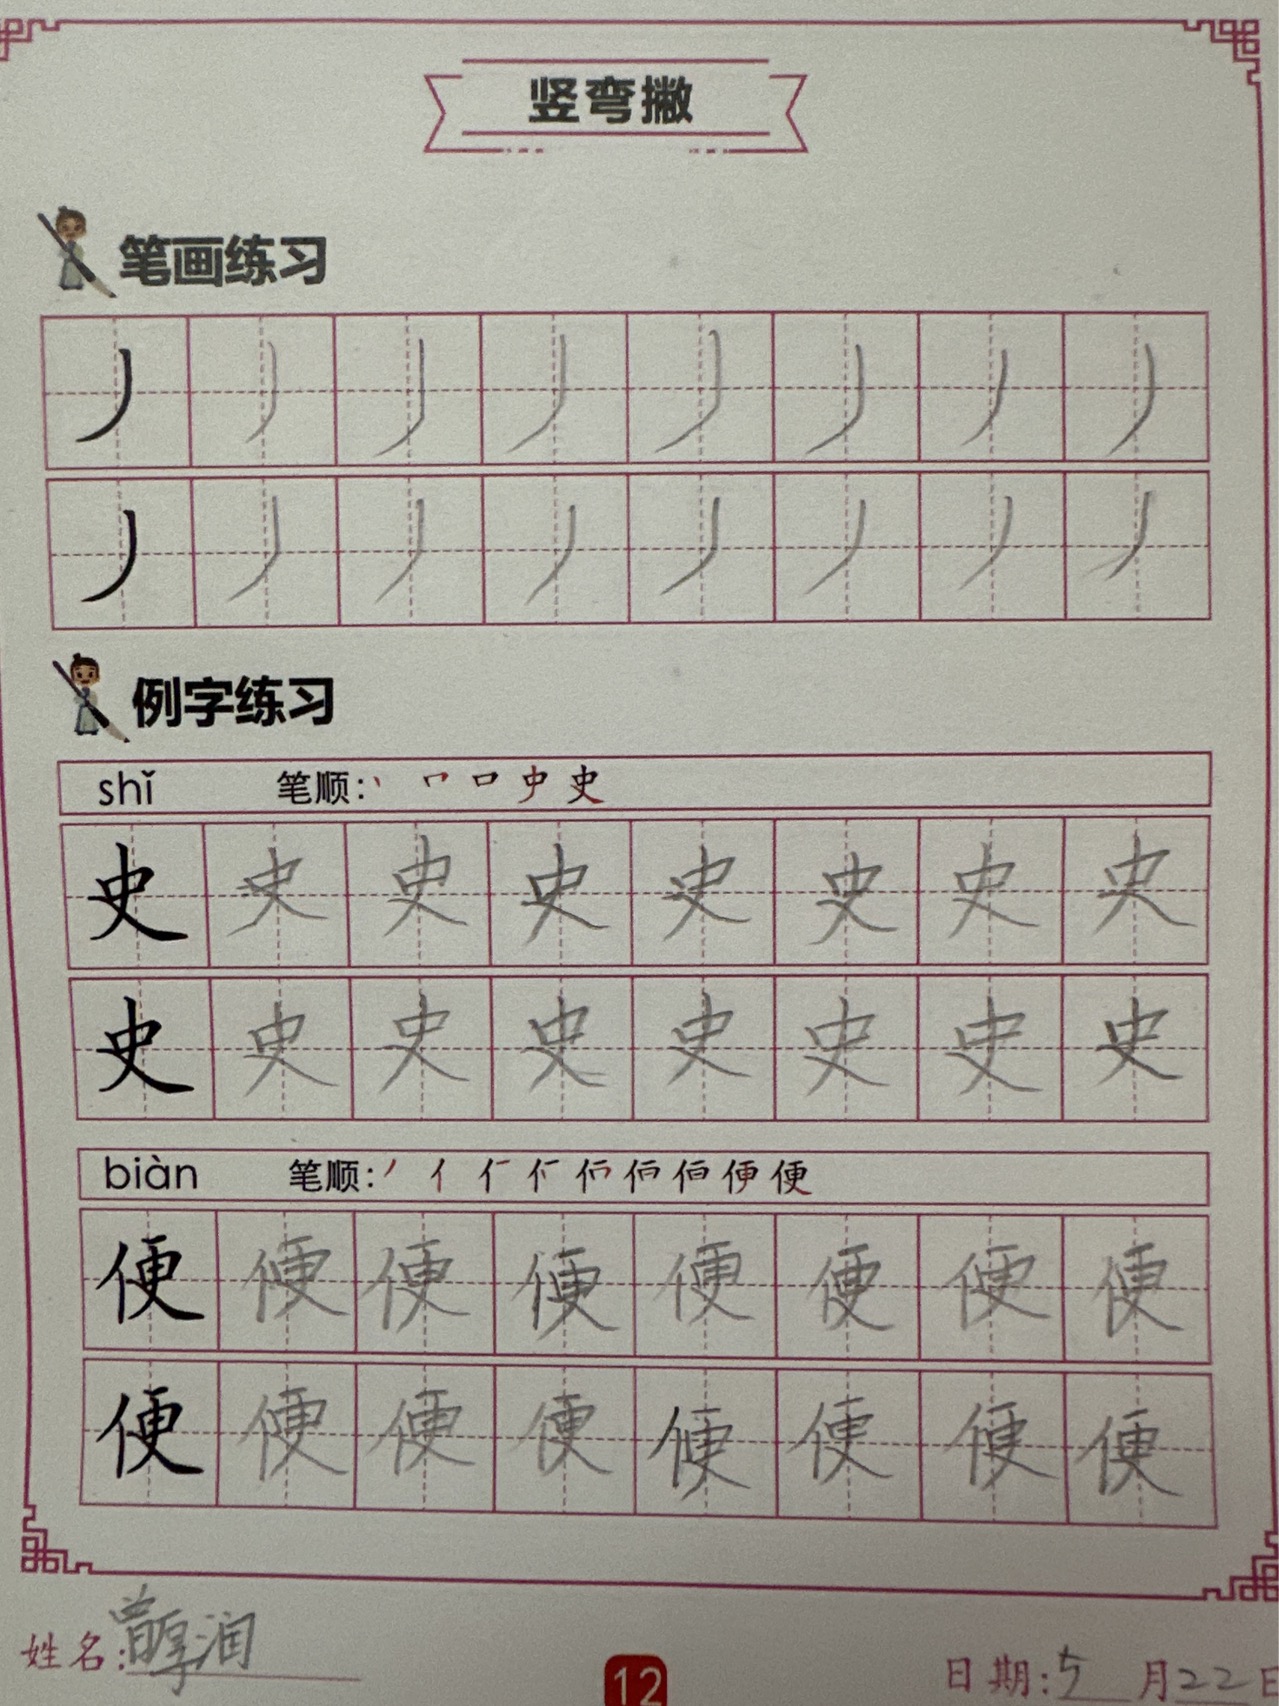 竖弯撇
笔画练习
丿 丿 丿 丿 丿 丿 丿 丿
丿 丿 丿 丿 丿 丿 丿 丿
例字练习
shǐ 笔顺: 丶 口 史
史 史 史 史 史 史 史 史
史 史 史 史 史 史 史 史
biàn 笔顺: 丿 亻 便
便 便 便 便 便 便 便 便
便 便 便 便 便 便 便 便
姓名: 曾厚润
12
日期: 5 月 22 日